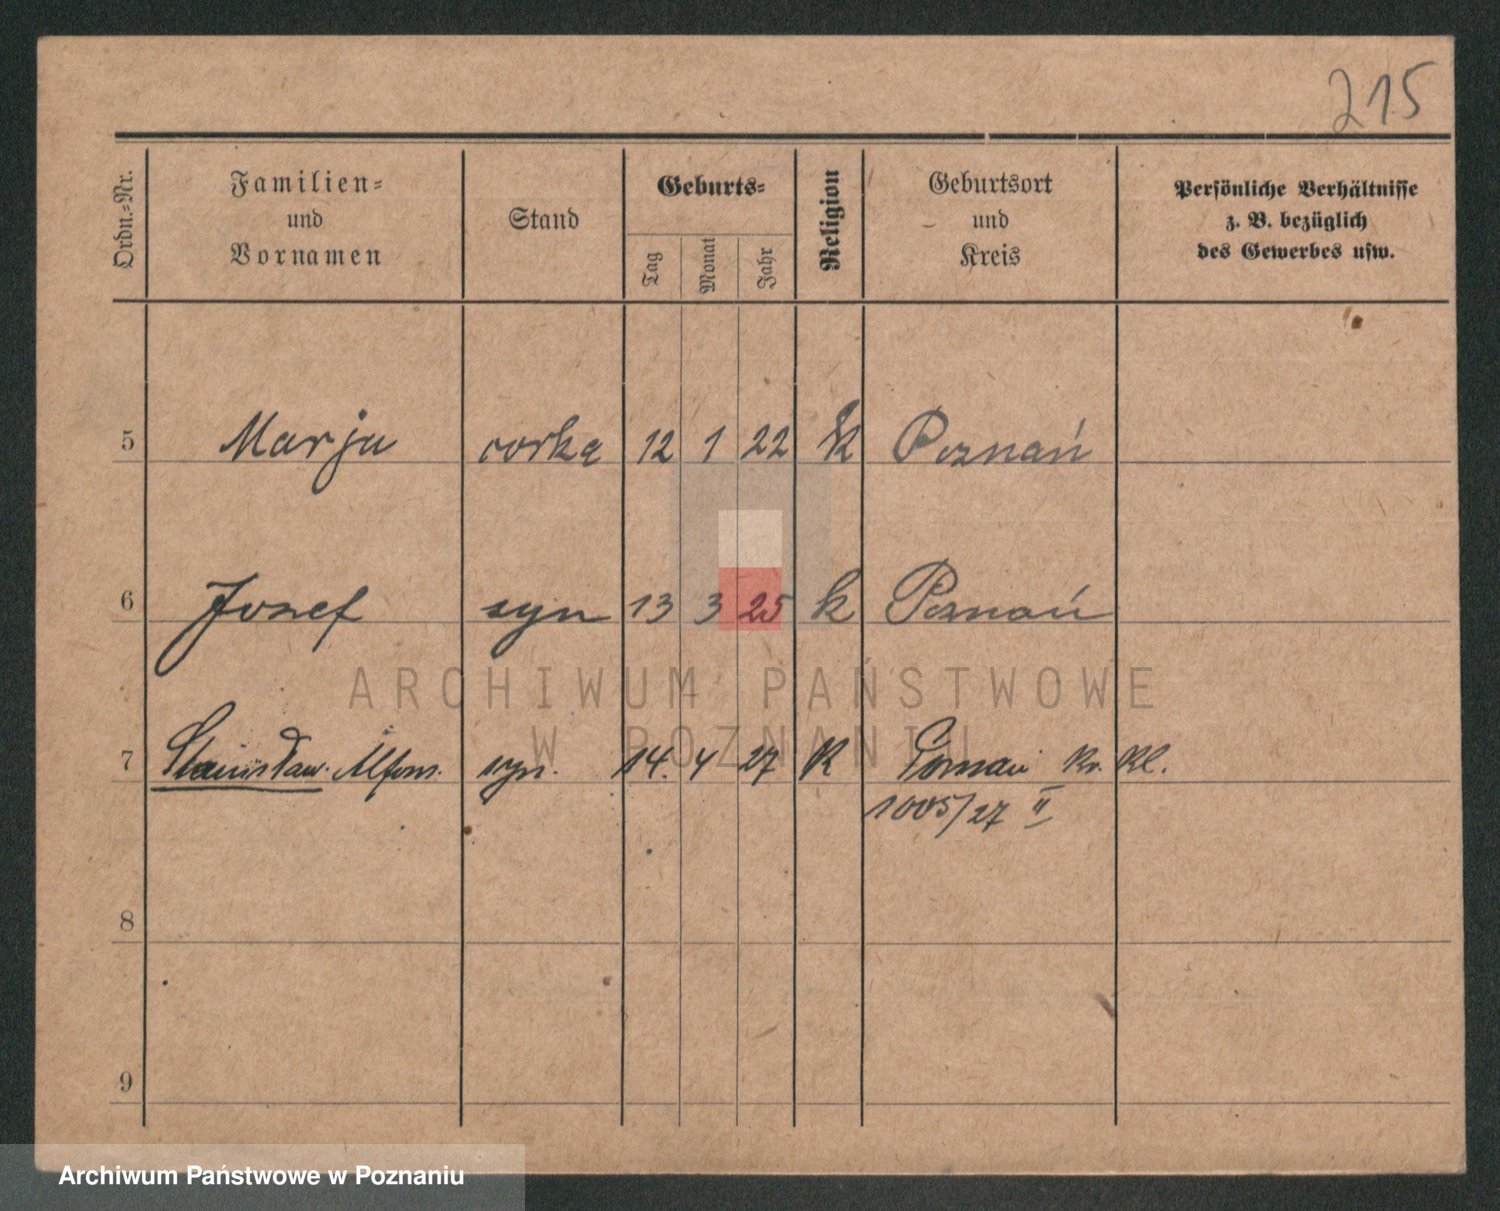 215
Ordn.-Nr.
Familien-
und
Vornamen
Stand
Geburts-
Tag
Monat
Jahr
Religion
Geburtsort
und
Kreis
Persönliche Verhältnisse
z. B. bezüglich
des Gewerbes usw.
5 Marja corka 12 1 22 k Poznań
6 Jozef syn 13 3 25 k Poznań
7 Stanisław Alfons. syn. 14. 4 27 K Poznań Kr. Kl.
1005/27 II
8
9
ARCHIWUM PAŃSTWOWE
W POZNANIU
Archiwum Państwowe w Poznaniu